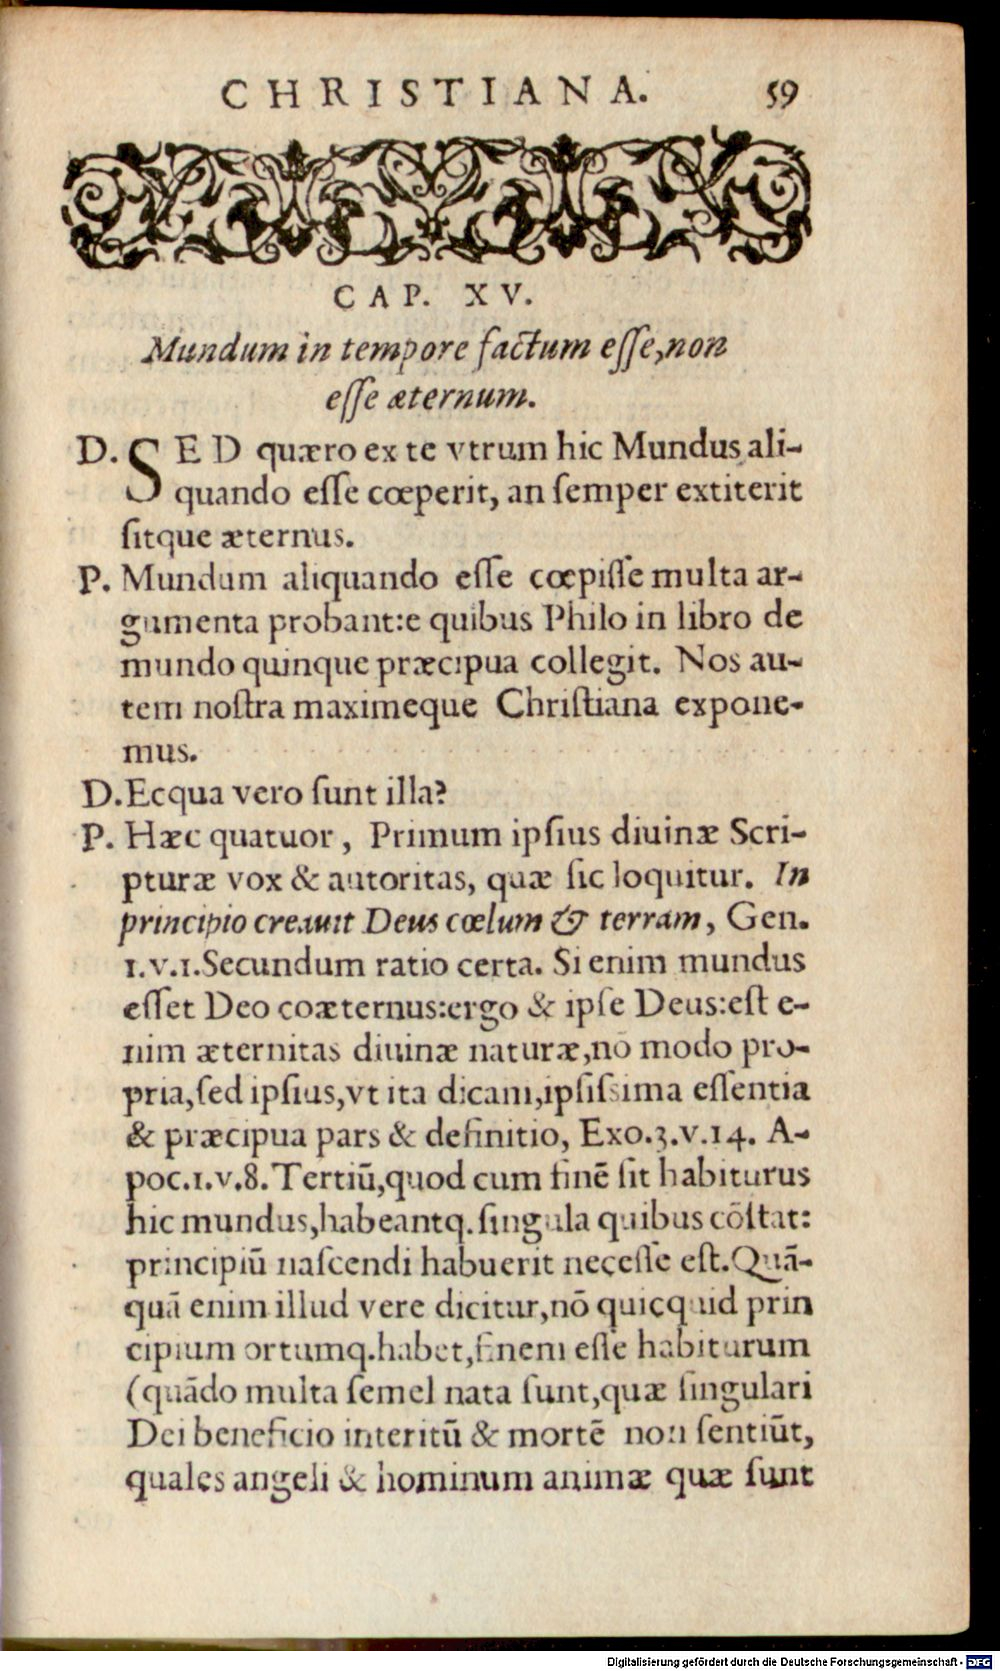 CHRISTIANA. 59
CAP. XV.
Mundum in tempore factum eſſe,non
eſſe æternum.
D. SED quæro ex te vtrum hic Mundus ali-
quando eſſe cœperit, an ſemper extiterit
ſitque æternus.
P. Mundum aliquando eſſe cœpiſſe multa ar-
gumenta probant:e quibus Philo in libro de
mundo quinque præcipua collegit. Nos au-
tem noſtra maximeque Chriſtiana expone-
mus.
D.Ecqua vero ſunt illa?
P. Hæc quatuor, Primum ipſius diuinæ Scri-
pturæ vox & autoritas, quæ ſic loquitur. In
principio creauit Deus cœlum & terram, Gen.
1.v.1.Secundum ratio certa. Si enim mundus
eſſet Deo coæternus:ergo & ipſe Deus:eſt e-
nim æternitas diuinæ naturæ,nō modo pro-
pria,ſed ipſius,vt ita dicam,ipſiſsima eſſentia
& præcipua pars & definitio, Exo.3.v.14. A-
poc.1.v.8. Tertiū,quod cum finē ſit habiturus
hic mundus,habeantq. ſingula quibus cōſtat:
principiū naſcendi habuerit neceſſe eſt.Quā-
quā enim illud vere dicitur,nō quicquid prin
cipium ortumq.habet,finem eſſe habiturum
(quādo multa ſemel nata ſunt,quæ ſingulari
Dei beneficio interitū & mortē non ſentiūt,
quales angeli & hominum animæ quæ ſunt
Digitalisierung gefördert durch die Deutsche Forschungsgemeinschaft - DFG